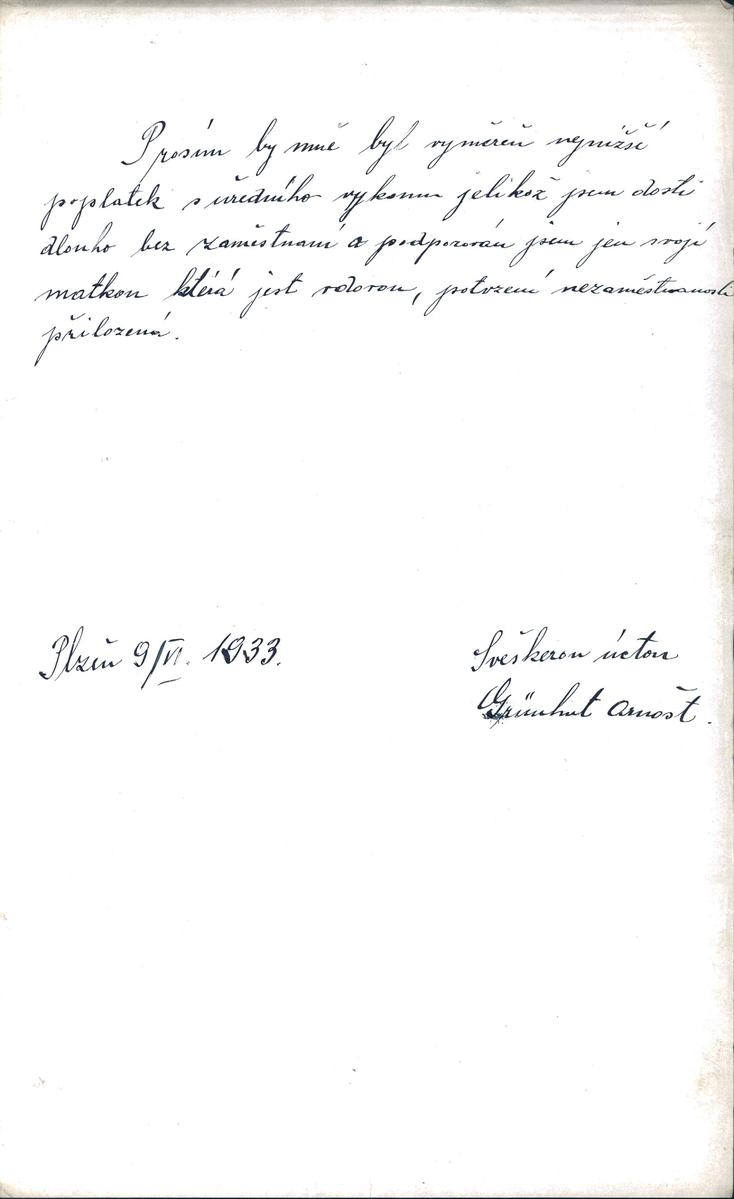 Prosím by mně byl vyměřeň nejnižší
poplatek s úředního vykonu jelikož jsem dosti
dlouho bez zaměstnaní a podporován jsem jen svojí
matkou která jest vdovou, potvzení nezaměstnanosti
přilozená.
Plzeň 9/VI. 1933.
Sveškerou úctou
Grünhut Arnošt.